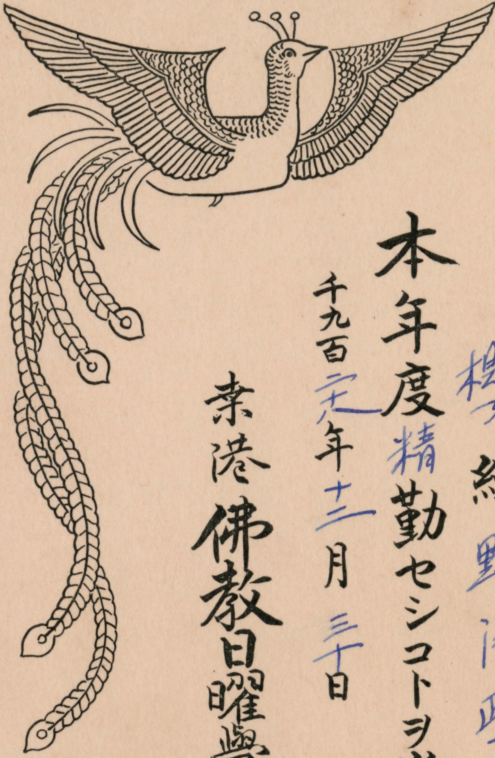 野
本年度精勤セシコトヲ
千九百二十八年十二月三十日
桒港佛教日曜學